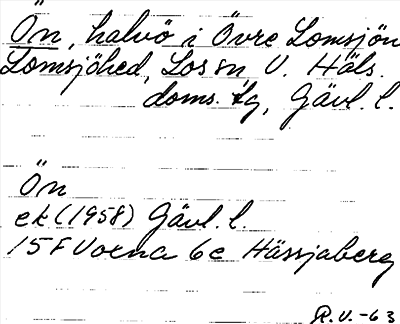 Ön, halvö i Övre Lomsjön
Lomsjöhed, Los sn V. Häls.
doms. tg, Gävl. l.
Ön
ek (1958) Gävl. l.
15F Voxna 6c Hässjaberg
R.V. -63